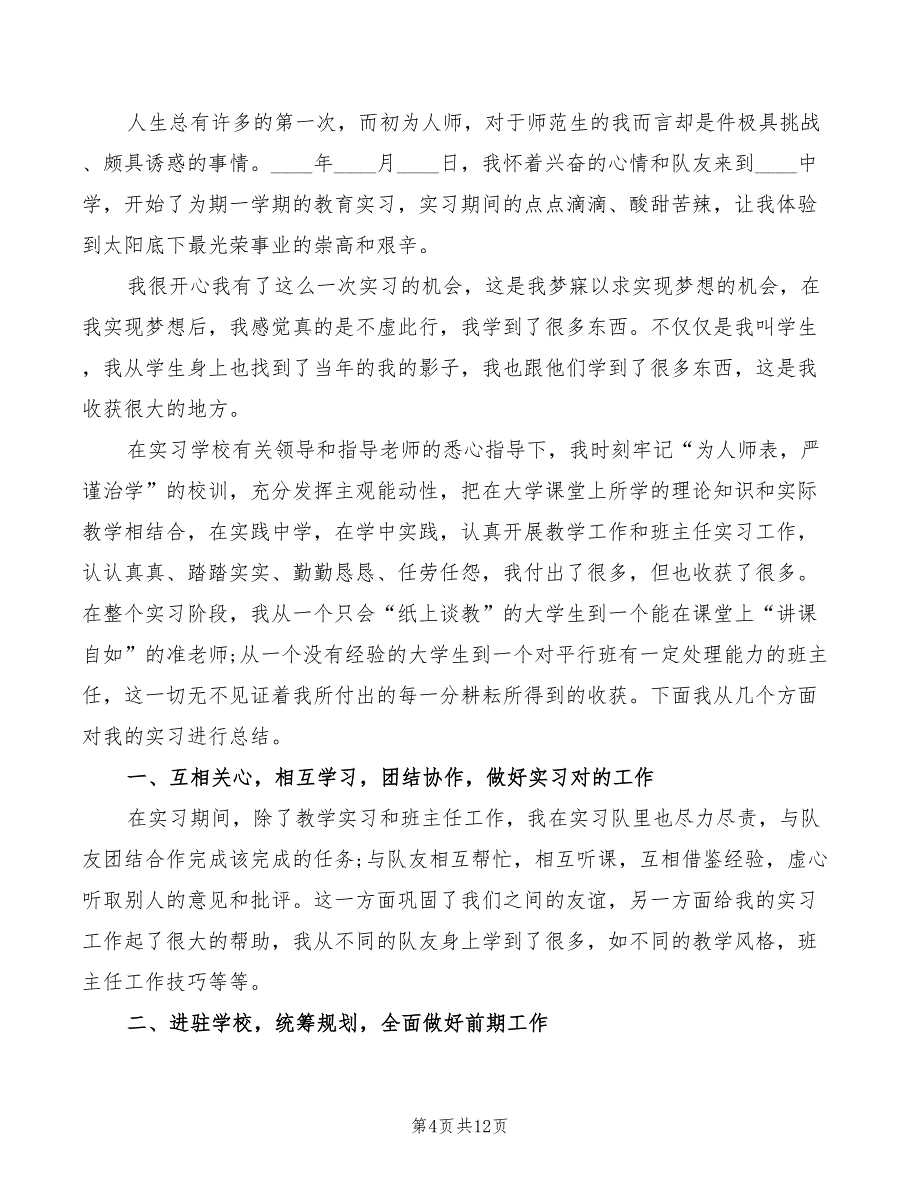 人生总有许多的第一次，而初为人师，对于师范生的我而言却是件极具挑战
、颇具诱惑的事情。____年____月____日，我怀着兴奋的心情和队友来到____中
学，开始了为期一学期的教育实习，实习期间的点点滴滴、酸甜苦辣，让我体验
到太阳底下最光荣事业的崇高和艰辛。
我很开心我有了这么一次实习的机会，这是我梦寐以求实现梦想的机会，在
我实现梦想后，我感觉真的是不虚此行，我学到了很多东西。不仅仅是我叫学生
，我从学生身上也找到了当年的我的影子，我也跟他们学到了很多东西，这是我
收获很大的地方。
在实习学校有关领导和指导老师的悉心指导下，我时刻牢记“为人师表，严
谨治学”的校训，充分发挥主观能动性，把在大学课堂上所学的理论知识和实际
教学相结合，在实践中学，在学中实践，认真开展教学工作和班主任实习工作，
认认真真、踏踏实实、勤勤恳恳、任劳任怨，我付出了很多，但也收获了很多。
在整个实习阶段，我从一个只会“纸上谈教”的大学生到一个能在课堂上“讲课
自如”的准老师;从一个没有经验的大学生到一个对平行班有一定处理能力的班主
任，这一切无不见证着我所付出的每一分耕耘所得到的收获。下面我从几个方面
对我的实习进行总结。
一、互相关心，相互学习，团结协作，做好实习对的工作
在实习期间，除了教学实习和班主任工作，我在实习队里也尽力尽责，与队
友团结合作完成该完成的任务;与队友相互帮忙，相互听课，互相借鉴经验，虚心
听取别人的意见和批评。这一方面巩固了我们之间的友谊，另一方面给我的实习
工作起了很大的帮助，我从不同的队友身上学到了很多，如不同的教学风格，班
主任工作技巧等等。
二、进驻学校，统筹规划，全面做好前期工作
第4页共12页